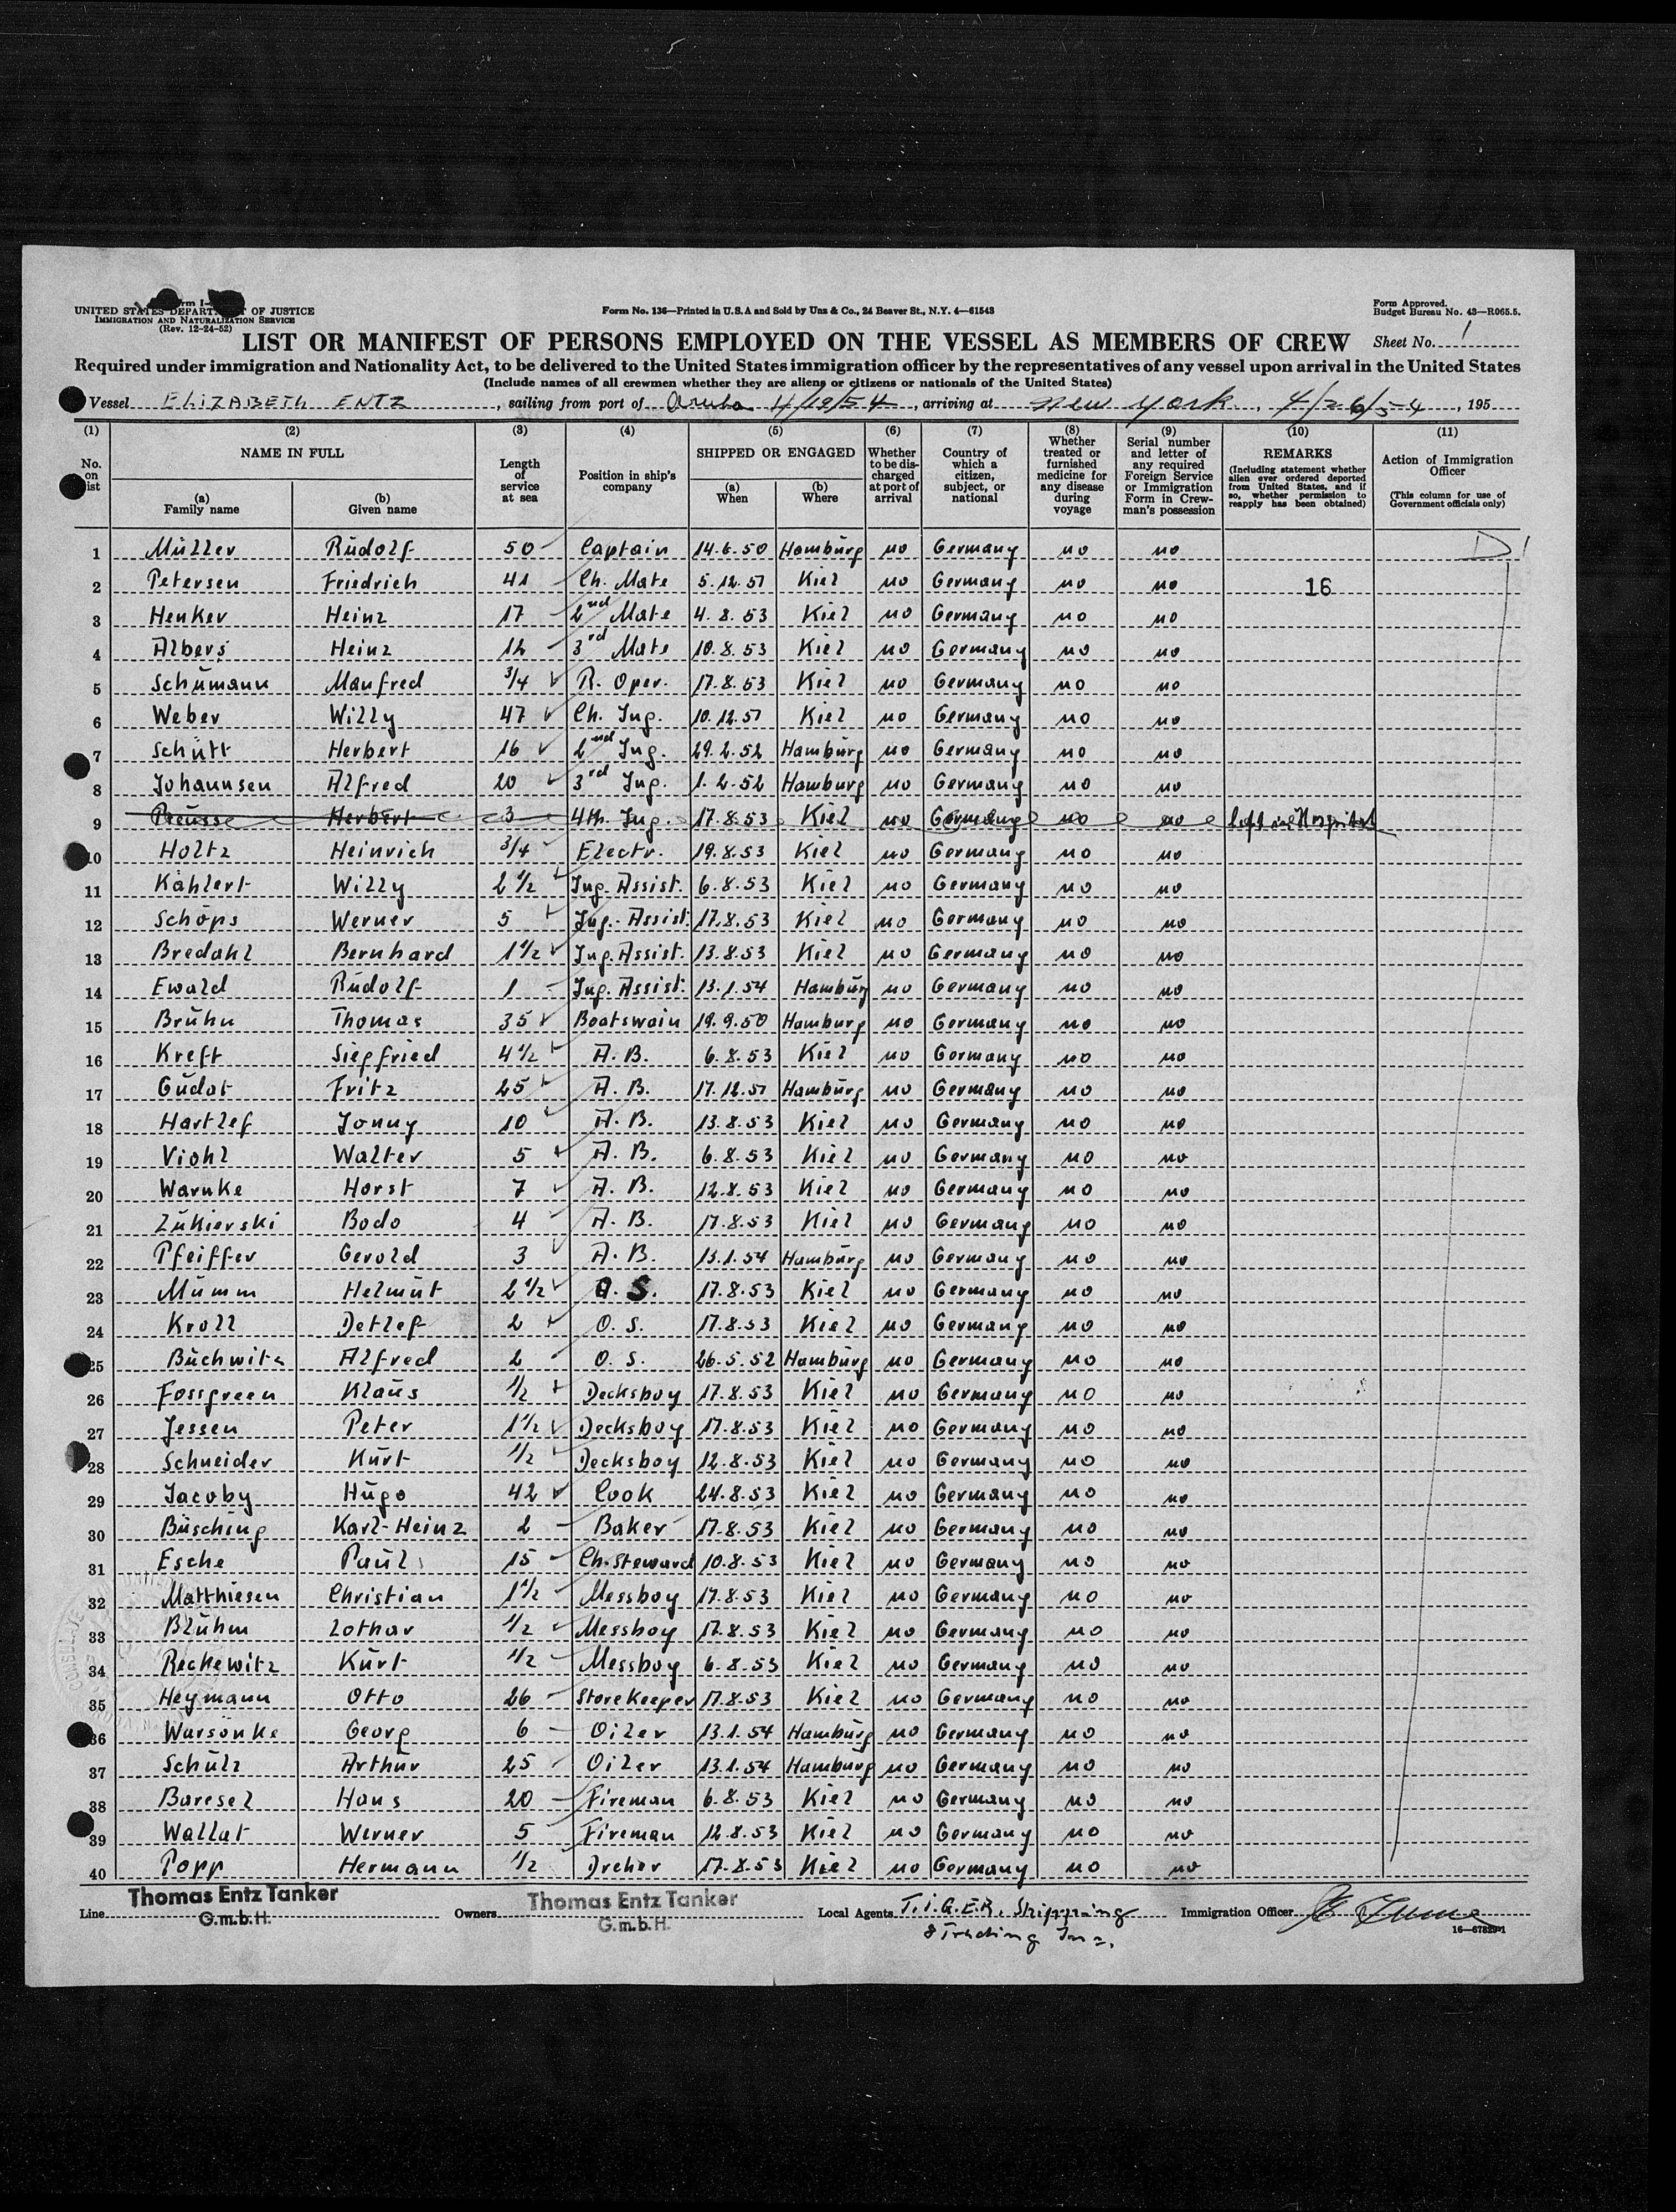 Form I-
UNITED STATES DEPARTMENT OF JUSTICE
IMMIGRATION AND NATURALIZATION SERVICE
(Rev. 12-24-52)
Form No. 136—Printed in U.S.A and Sold by Unz & Co., 24 Beaver St., N.Y. 4—61543
Form Approved.
Budget Bureau No. 43—R065.5.
LIST OR MANIFEST OF PERSONS EMPLOYED ON THE VESSEL AS MEMBERS OF CREW
Sheet No. 1
Required under immigration and Nationality Act, to be delivered to the United States immigration officer by the representatives of any vessel upon arrival in the United States
(Include names of all crewmen whether they are aliens or citizens or nationals of the United States)
Vessel ELIZABETH ENTZ, sailing from port of Aruba 4/19/54, arriving at New York, 4/26/54, 195
(1) (2) (3) (4) (5) (6) (7) (8) (9) (10) (11)
No. on list
NAME IN FULL
(a) Family name
(b) Given name
Length of service at sea
Position in ship's company
SHIPPED OR ENGAGED
(a) When
(b) Where
Whether to be discharged at port of arrival
Country of which a citizen, subject, or national
Whether treated or furnished medicine for any disease during voyage
Serial number and letter of any required Foreign Service or Immigration Form in Crewman's possession
REMARKS
(Including statement whether alien ever ordered deported from United States, and if so, whether permission to reapply has been obtained)
Action of Immigration Officer
(This column for use of Government officials only)
1 Müller Rudolf 50 Captain 14.6.50 Hamburg no Germany no no D1
2 Petersen Friedrich 41 Ch. Mate 5.12.51 Kiel no Germany no no 16
3 Henker Heinz 17 2nd Mate 4.8.53 Kiel no Germany no no
4 Albers Heinz 12 3rd Mate 10.8.53 Kiel no Germany no no
5 Schumann Manfred 3/4 R. Oper. 17.8.53 Kiel no Germany no no
6 Weber Willy 47 Ch. Ing. 10.12.51 Kiel no Germany no no
7 Schütt Herbert 16 2nd Ing. 29.2.52 Hamburg no Germany no no
8 Johannsen Alfred 20 3rd Ing. 1.2.52 Hamburg no Germany no no
9 Preusse Herbert 3 4th. Ing. 17.8.53 Kiel no Germany no no left in Hospital
10 Holtz Heinrich 3/4 Electr. 19.8.53 Kiel no Germany no no
11 Kählert Willy 2 1/2 Ing. Assist. 6.8.53 Kiel no Germany no no
12 Schöps Werner 5 Ing.-Assist. 17.8.53 Kiel no Germany no no
13 Bredahl Bernhard 1 1/2 Ing. Assist. 13.8.53 Kiel no Germany no no
14 Ewald Rudolf 1 Ing. Assist. 13.1.54 Hamburg no Germany no no
15 Bruhn Thomas 35 Boatswain 19.9.50 Hamburg no Germany no no
16 Kreft Siegfried 4 1/2 A. B. 6.8.53 Kiel no Germany no no
17 Gudat Fritz 25 A. B. 17.12.51 Hamburg no Germany no no
18 Hartlef Jonny 10 A. B. 13.8.53 Kiel no Germany no no
19 Viohl Walter 5 A. B. 6.8.53 Kiel no Germany no no
20 Warnke Horst 7 A. B. 12.8.53 Kiel no Germany no no
21 Zukierski Bodo 4 A. B. 17.8.53 Kiel no Germany no no
22 Pfeiffer Gerold 3 A. B. 13.1.54 Hamburg no Germany no no
23 Mumm Helmut 2 1/2 O. S. 17.8.53 Kiel no Germany no no
24 Kroll Detlef 2 O. S. 17.8.53 Kiel no Germany no no
25 Buchwitz Alfred 2 O. S. 26.5.52 Hamburg no Germany no no
26 Fossgreen Klaus 1/2 Decksboy 17.8.53 Kiel no Germany no no
27 Jessen Peter 1 1/2 Decksboy 17.8.53 Kiel no Germany no no
28 Schneider Kurt 1/2 Decksboy 12.8.53 Kiel no Germany no no
29 Jacoby Hugo 42 Cook 24.8.53 Kiel no Germany no no
30 Büsching Karl-Heinz 2 Baker 17.8.53 Kiel no Germany no no
31 Esche Paul 15 Ch. Steward 10.8.53 Kiel no Germany no no
32 Matthiesen Christian 1 1/2 Messboy 17.8.53 Kiel no Germany no no
33 Bluhm Lothar 1/2 Messboy 17.8.53 Kiel no Germany no no
34 Reckewitz Kurt 1/2 Messboy 6.8.53 Kiel no Germany no no
35 Heymann Otto 26 Storekeeper 17.8.53 Kiel no Germany no no
36 Warsönke Georg 6 Oiler 13.1.54 Hamburg no Germany no no
37 Schulz Arthur 25 Oiler 13.1.54 Hamburg no Germany no no
38 Baresel Hans 20 Fireman 6.8.53 Kiel no Germany no no
39 Wallat Werner 5 Fireman 12.8.53 Kiel no Germany no no
40 Popp Hermann 1/2 Dreher 17.8.53 Kiel no Germany no no
Line Thomas Entz Tanker G.m.b.H. Owners Thomas Entz Tanker G.m.b.H. Local Agents T.I.G.E.R. Shipping & Trading Inc. Immigration Officer
16—67829-1